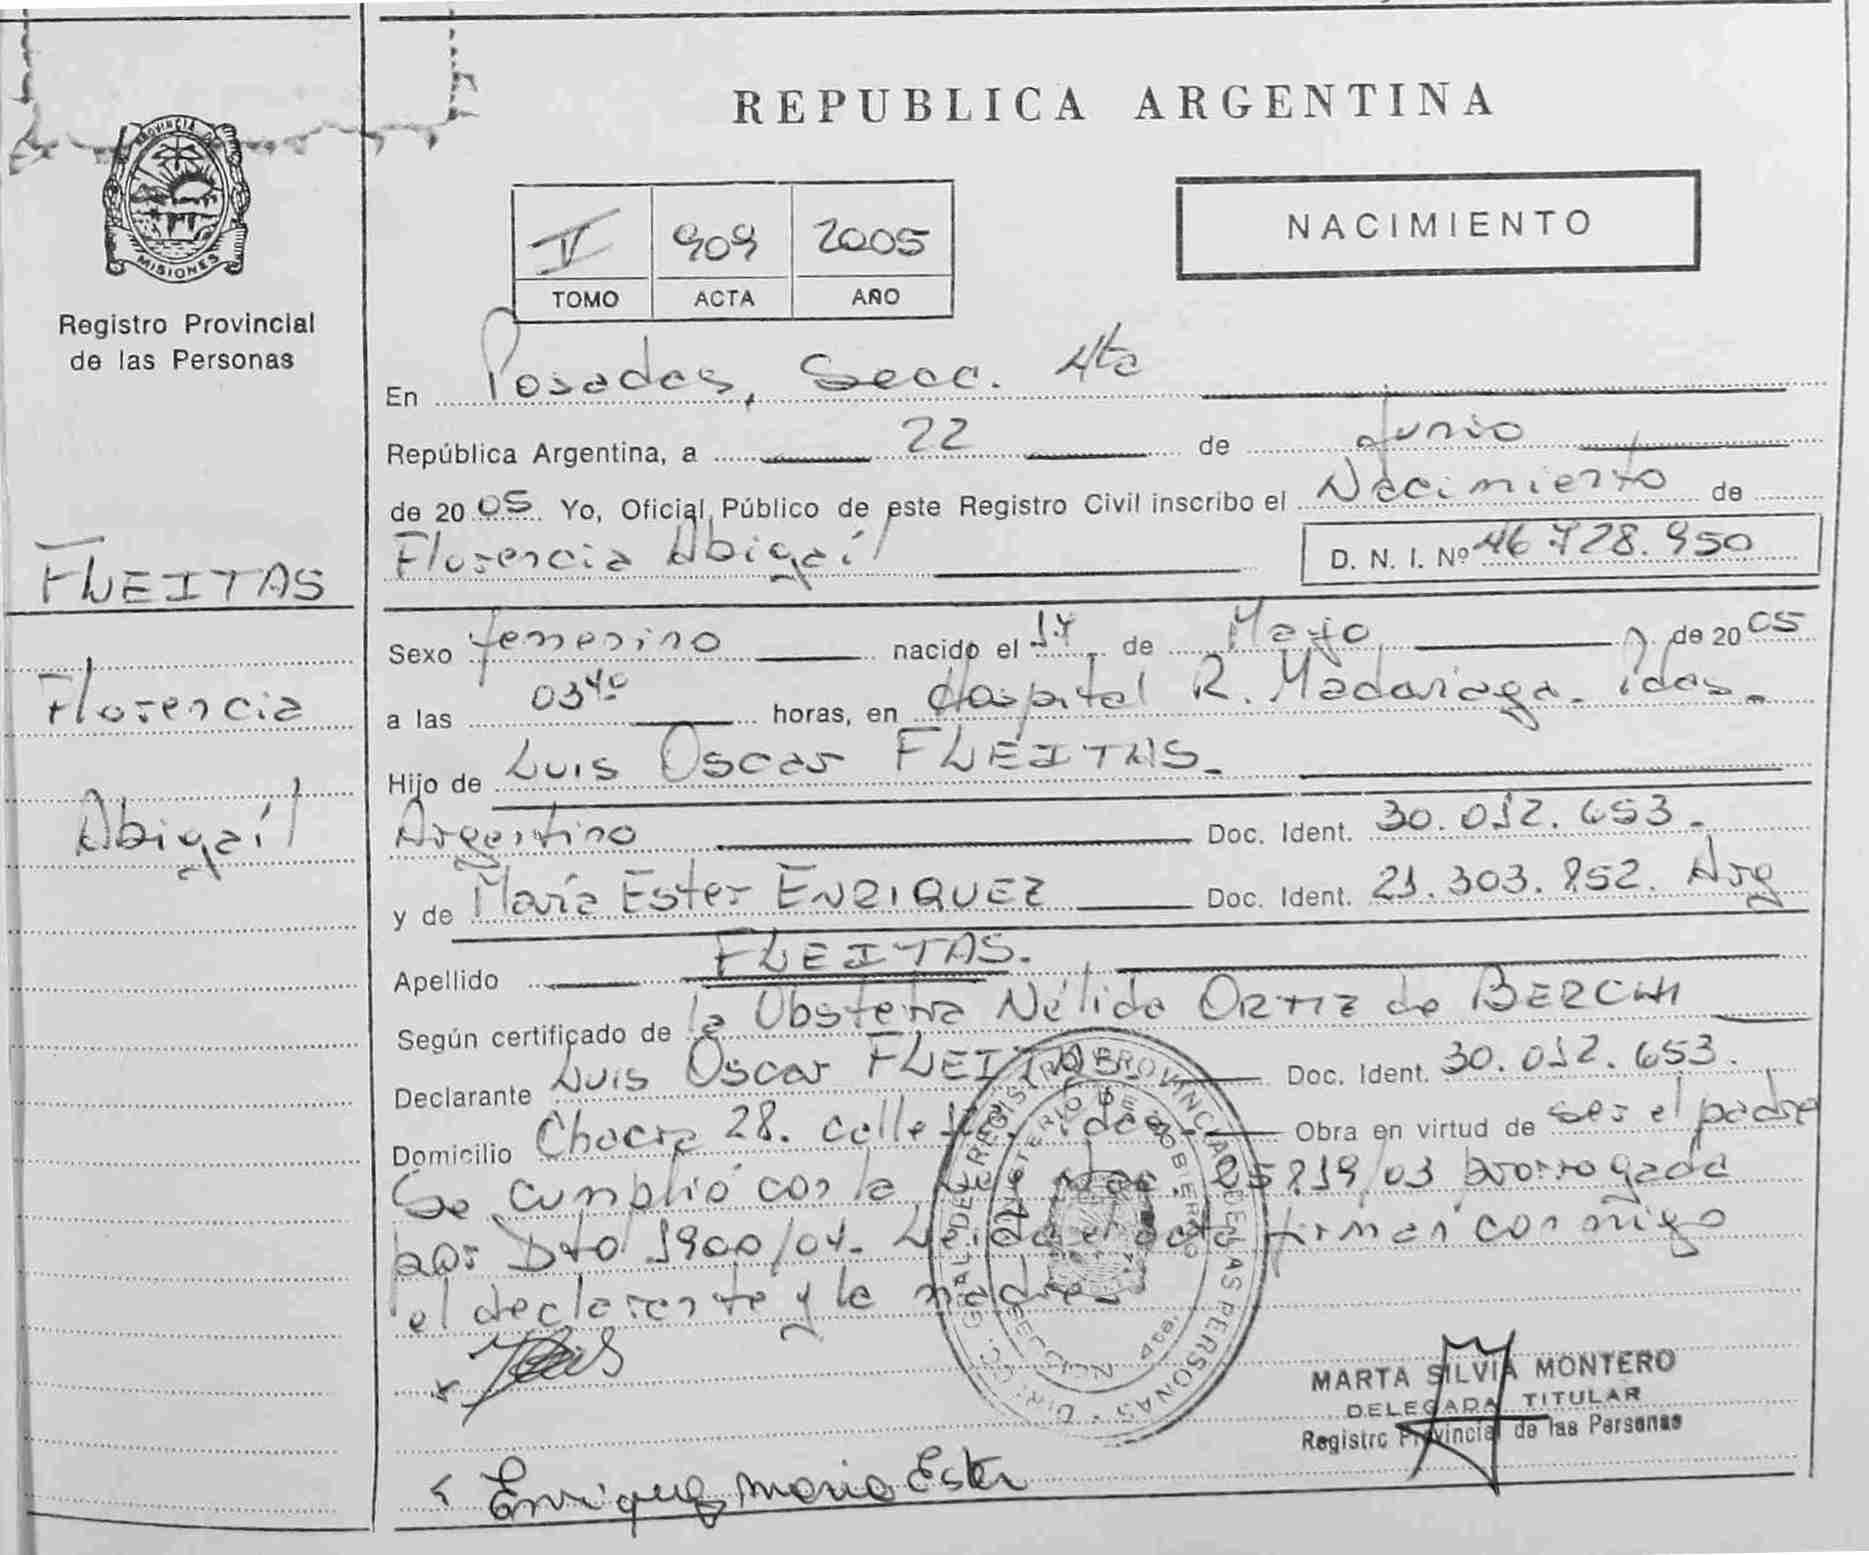 REPUBLICA ARGENTINA
PROVINCIA DE
MISIONES
Registro Provincial
de las Personas
NACIMIENTO
909 2005
TOMO ACTA AÑO
En Posadas, Secc. 4ta
República Argentina, a 22 de Junio
de 2005 Yo, Oficial Público de este Registro Civil inscribo el Nacimiento de
Florencia Abigaíl D. N. I. Nº 46.728.950
FLEITAS
Florencia
Abigaíl
Sexo femenino nacido el 17 de Mayo de 2005
a las 03 40 horas, en Hospital R. Madariaga. Pdas.
Hijo de Luis Oscar FLEITAS.
Argentino Doc. Ident. 30.012.653.
y de María Ester ENRIQUEZ Doc. Ident. 21.303.852. Arg
Apellido FLEITAS.
Según certificado de la Obstetra Nélida ORTIZ de
Declarante Luis Oscar FLEITAS Doc. Ident. 30.012.653.
Domicilio Chacra 28. calle Obra en virtud de ser el padre
Se cumplió con la Ley Nac. 25819/03 prorrogada
por Dto 1900/04. Leída el acta firman conmigo
el declarante y la madre.
DIREC. GRAL. DE REGISTRO PROVINCIAL DE LAS PERSONAS
MINISTERIO DE GOBIERNO
MARTA SILVIA MONTERO
DELEGADA TITULAR
Registro Provincial de las Personas
Enriquez maria Ester